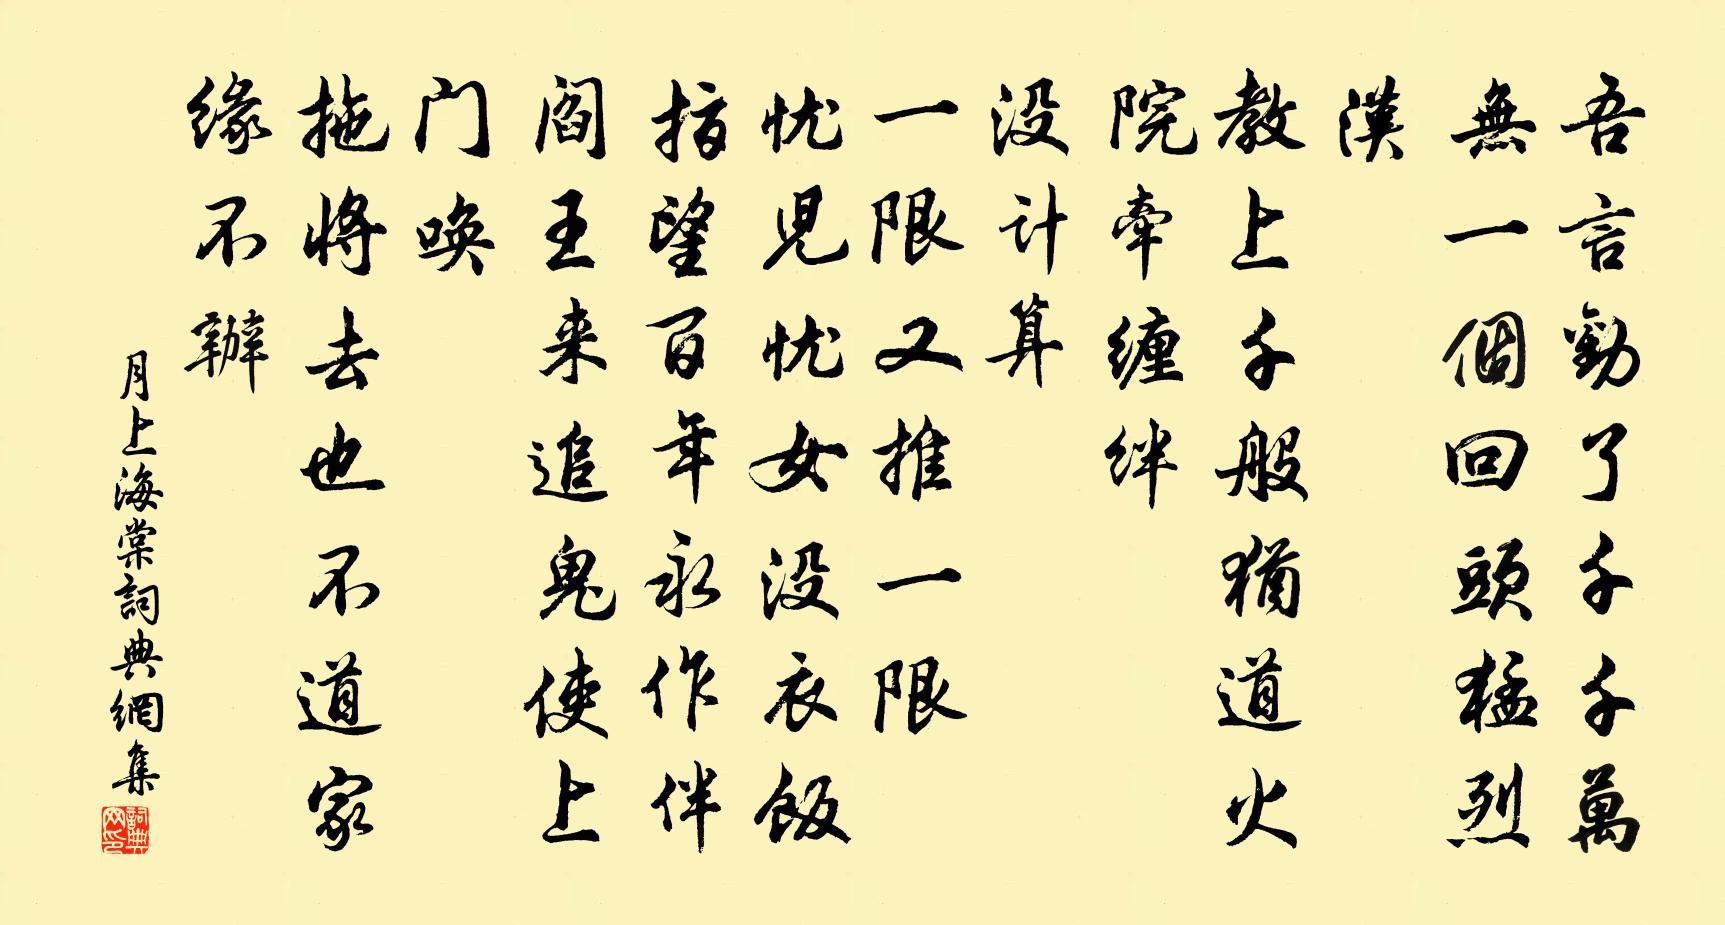 吾言勸了千千萬
無一個回頭猛烈
漢
教上千般猶道火
院牽缠絆
没计算
一限又推一限
忧児忧女没衣飯
指望百年永作伴
阎王来追鬼使上
门唤
拖將去也不道家
缘不辦
月上海棠詞典網集
詞典网印